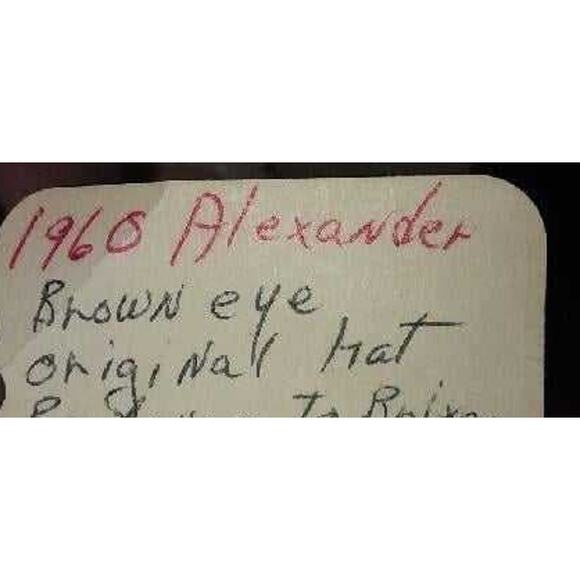 1960 Alexander
Brown eye
original hat
To